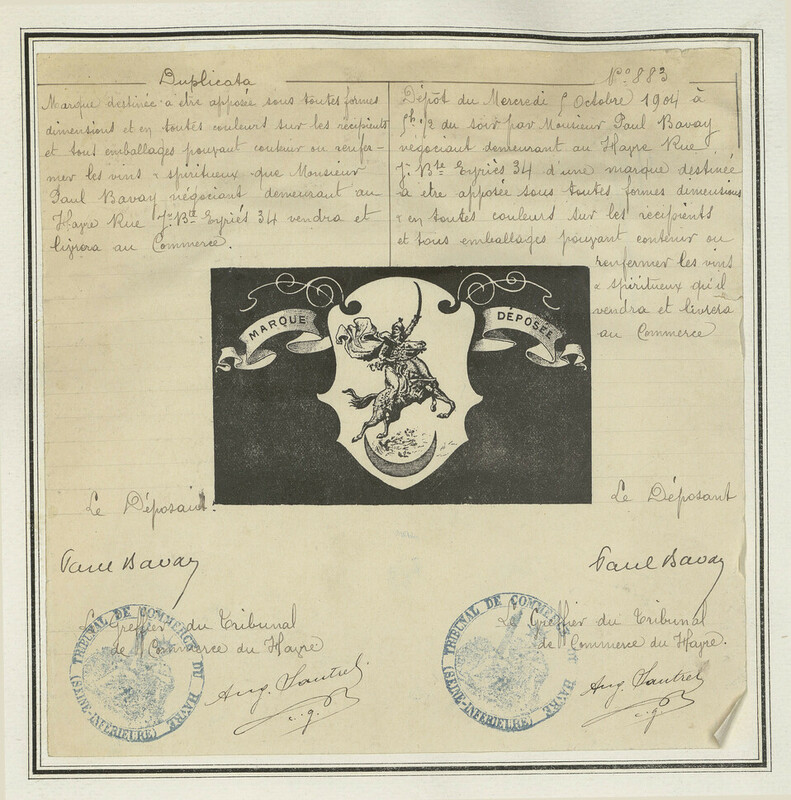 Duplicata
Marque destinée à être apposée sous toutes formes
dimensions et en toutes couleurs sur les récipients
et tous emballages pouvant contenir ou renfer-
mer les vins & spiritueux que Monsieur
Paul Bavay négociant demeurant au
Havre Rue Jn Bte Eyriès 34 vendra et
livrera au Commerce.
No 883
Dépôt du Mercredi 5 Octobre 1904 à
5h 1/2 du soir par Monsieur Paul Bavay
négociant demeurant au Havre Rue
Jn Bte Eyriès 34 d'une marque destinée
à être apposée sous toutes formes dimensions
& en toutes couleurs sur les récipients
et tous emballages pouvant contenir ou
renfermer les vins
& spiritueux qu'il
vendra et livrera
au Commerce
MARQUE DÉPOSÉE
Le Déposant.
Paul Bavay
Le Greffier du Tribunal
de Commerce du Havre
TRIBUNAL DE COMMERCE DU HAVRE
(SEINE-INFÉRIEURE)
Aug. Sautrel
c.g.
Le Déposant
Paul Bavay
Le Greffier du Tribunal
de Commerce du Havre.
TRIBUNAL DE COMMERCE DU HAVRE
(SEINE-INFÉRIEURE)
Aug. Sautrel
c.g.